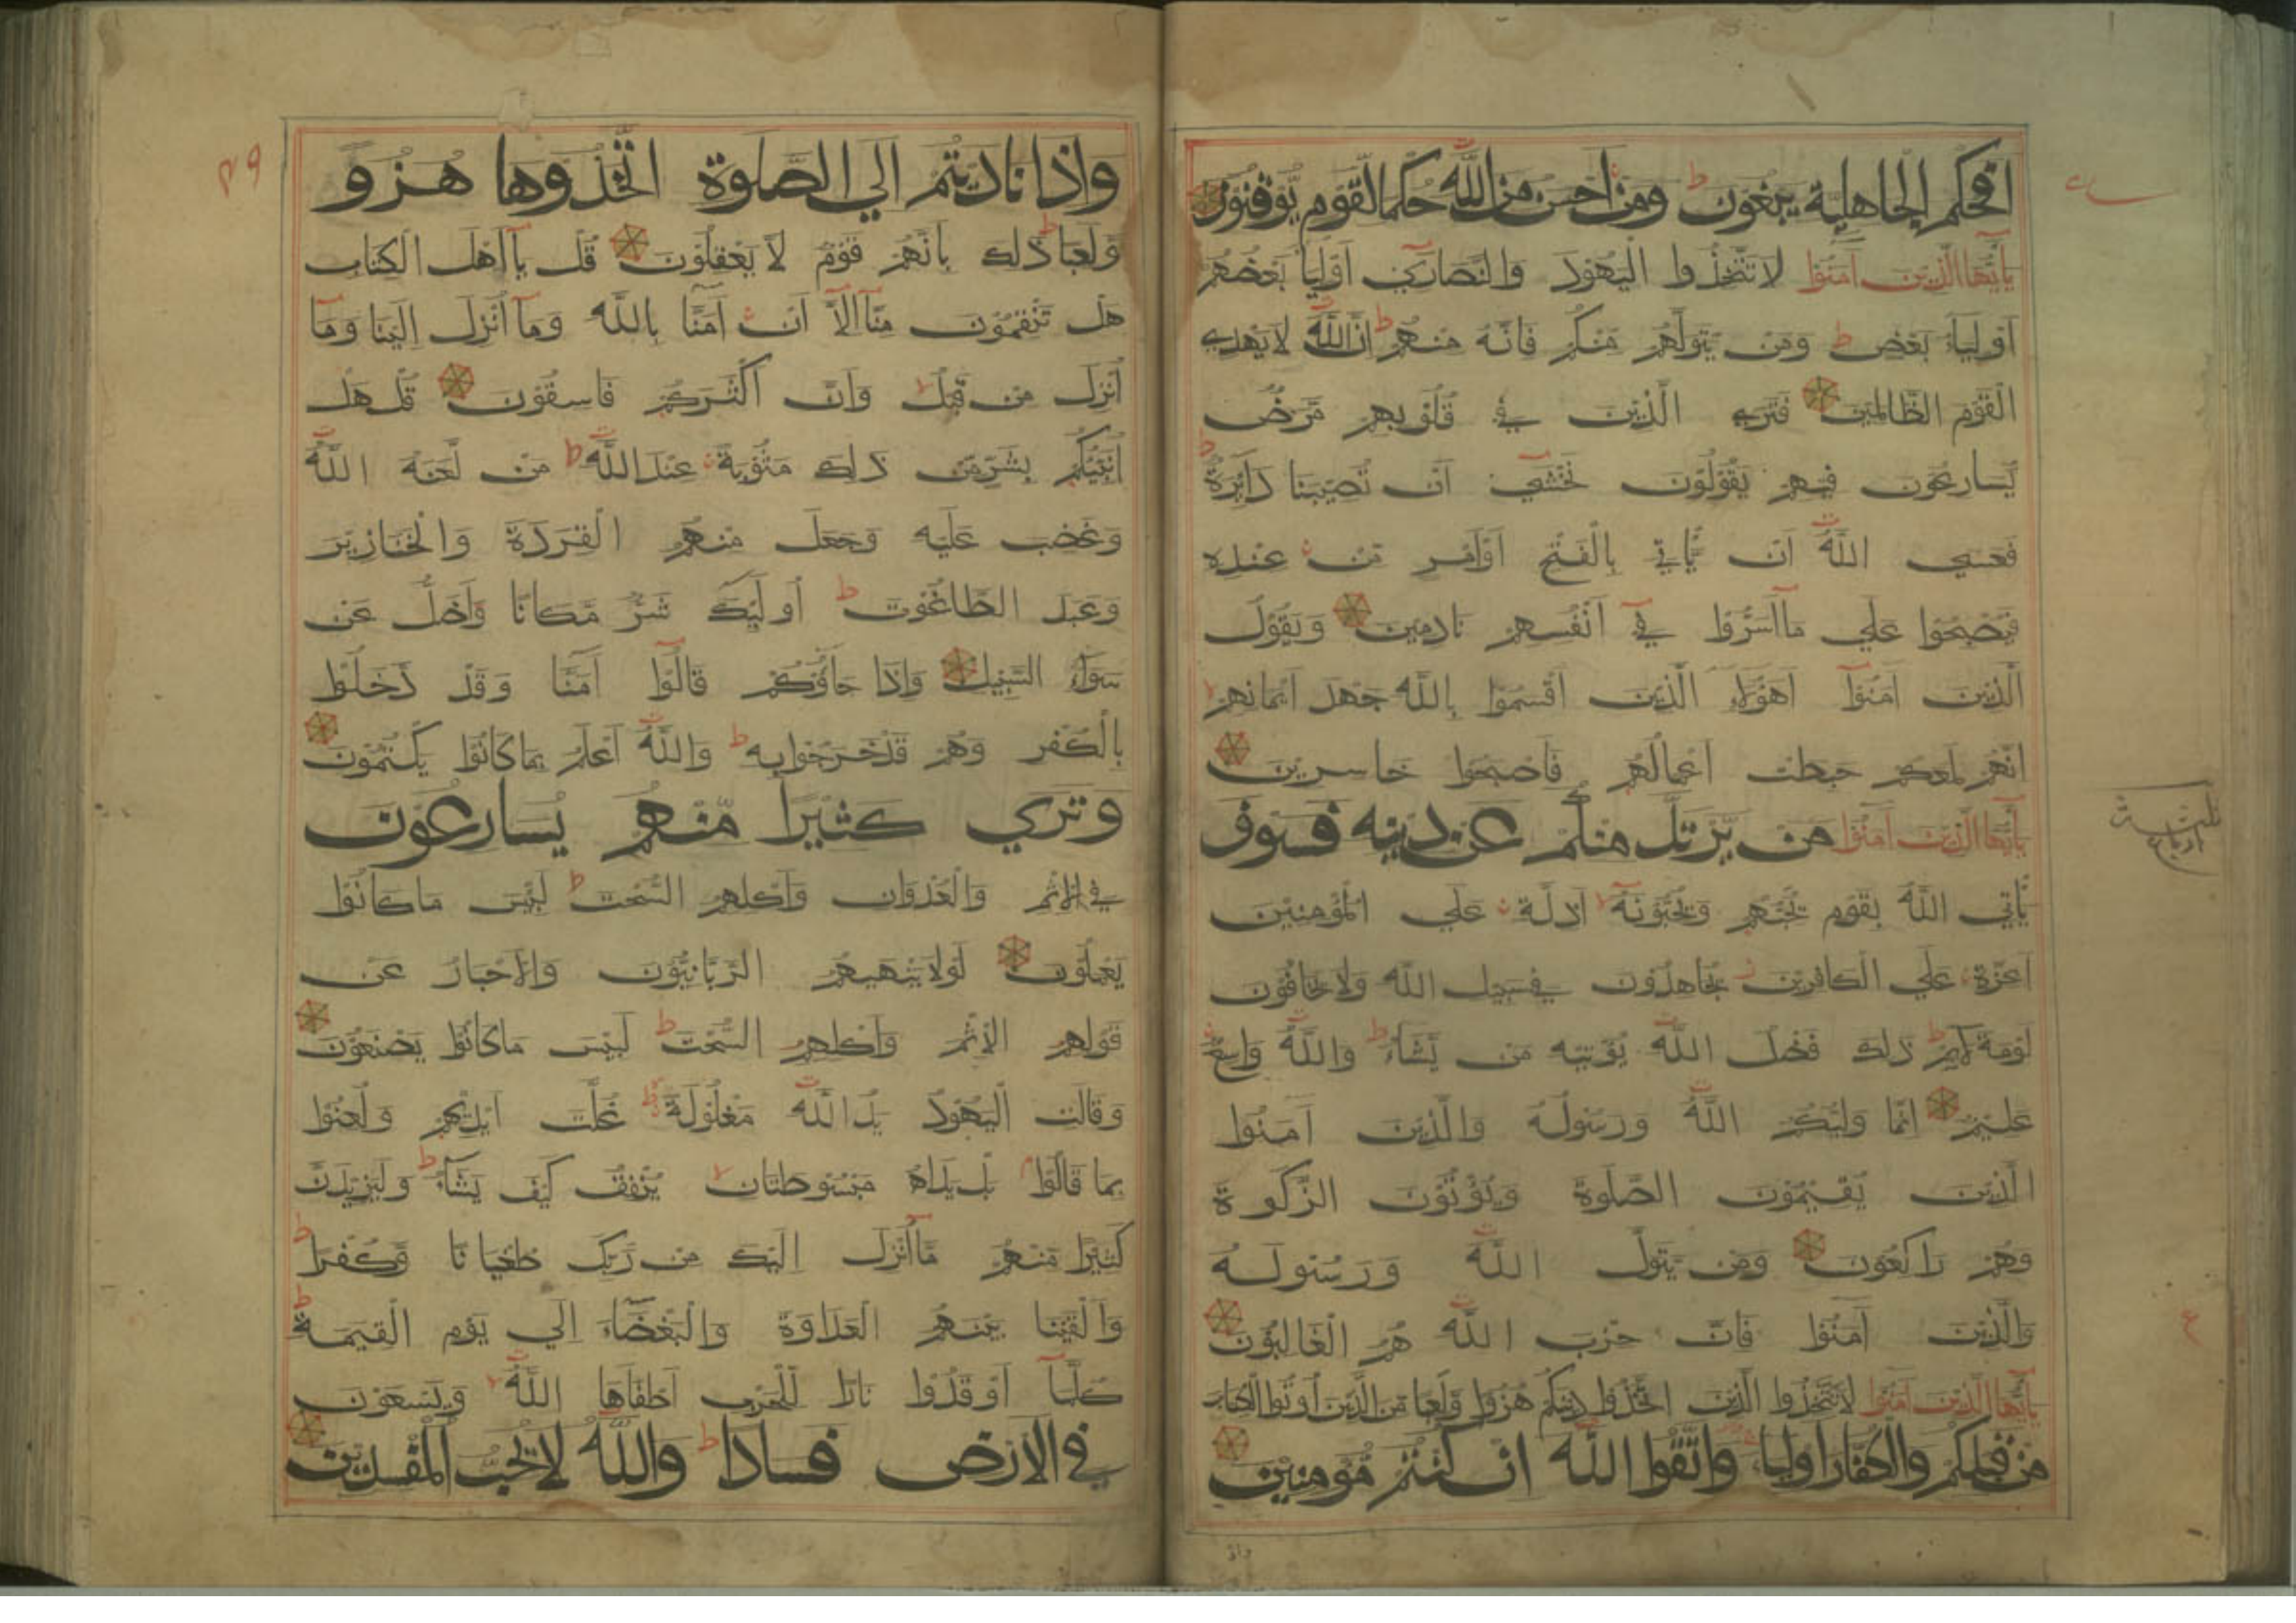 افحكم الجاهلية يبغون ط ومن احسن من الله حكما لقوم يوقنون
يآأيها الذين آمنوا لا تتخذوا اليهود والنصاري أوليآ بعضهم
أوليآء بعض ط ومن يتولهم منكم فانه منهم ط ان الله لا يهدي
القوم الظالمين فتري الذين في قلوبهم مرض
يسارعون فيهم يقولون نخشي ان تصيبنا دآئرة ط
فعسي الله ان يأتي بالفتح أو أمر من عنده
فيصبحوا علي مآ أسروا في أنفسهم نادمين ويقول
الذين آمنوا أهؤلاء الذين أقسموا بالله جهد أيمانهم
انهم لمعكم حبطت أعمالهم فأصبحوا خاسرين
يآأيها الذين آمنوا من يرتد منكم عن دينه فسوف
يأتي الله بقوم يحبهم ويحبونه أذلة علي المؤمنين
أعزة علي الكافرين يجاهدون في سبيل الله ولا يخافون
لومة لآئم ط ذلك فضل الله يؤتيه من يشآء ط والله واسع
عليم انما وليكم الله ورسوله والذين آمنوا
الذين يقيمون الصلوة ويؤتون الزكوة
وهم راكعون ومن يتول الله ورسوله
والذين آمنوا فان حزب الله هم الغالبون
يآأيها الذين آمنوا لا تتخذوا الذين اتخذوا دينكم هزوا ولعبا من الذين أوتوا الكتاب
من قبلكم والكفار أوليآء واتقوا الله ان كنتم مؤمنين
ع
واذا ناديتم الي الصلوة اتخذوها هزو
ولعبا ط ذلك بانهم قوم لا يعقلون قل يآ أهل الكتاب
هل تنقمون منآ الآ أن آمنا بالله ومآ أنزل الينا ومآ
أنزل من قبل وان أكثركم فاسقون قل هل
أنبئكم بشر من ذلك مثوبة عند الله ط من لعنه الله
وغضب عليه وجعل منهم القردة والخنازير
وعبد الطاغوت ط أولئك شر مكانا وأضل عن
سوآء السبيل واذا جآؤكم قالوآ آمنا وقد دخلوا
بالكفر وهم قد خرجوا به ط والله أعلم بما كانوا يكتمون
وتري كثيرا منهم يسارعون
في الاثم والعدوان وأكلهم السحت ط لبئس ما كانوا
يعملون لولا ينهيهم الربانيون والاحبار عن
قولهم الاثم وأكلهم السحت ط لبئس ما كانوا يصنعون
وقالت اليهود يد الله مغلولة ط غلت أيديهم ولعنوا
بما قالوا بل يداه مبسوطتان ينفق كيف يشآء ط وليزيدن
كثيرا منهم مآ أنزل اليك من ربك طغيانا وكفرا ط
وألقينا بينهم العداوة والبغضآء الي يوم القيمة ط
كلمآ أوقدوا نارا للحرب أطفاها الله ويسعون
في الارض فسادا ط والله لا يحب المفسدين